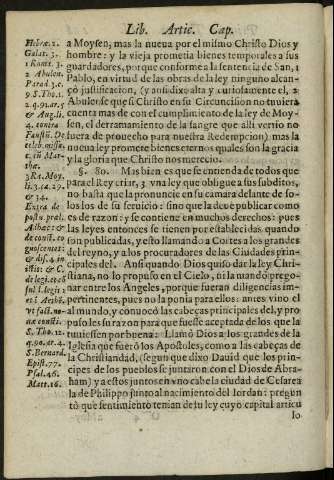 Lib. Artic. Cap.
a Moysen, mas la nueua por el mismo Christo Dios y
hombre: y la vieja prometia bienes temporales a sus
guardadores, porque conforme a la sentencia de San,
Pablo, en virtud de las obras de la ley ninguno alcan-
ço justificacion, (y añsi dixo alta y curiosamente el,
Abulense que si Christo en su Circuncision no tuuiera
cuenta mas de con el cumplimiento de la ley de Moy-
sen, el derramamiento de la sangre que alli vertio no
fuera de prouecho para nuestra Redempcion) mas la
nueua ley promete bienes eternos quales son la gracia
y la gloria que Christo nos merecio.
§. 80. Mas bien es que se entienda de todos que
para el Rey criar, y na ley que obligue a sus subditos,
no basta que la pronuncie en su camara delante de so-
los los de su seruicio: sino que la deue publicar como
es de razon: y se contiene en muchos derechos: pues
las leyes entonces se tienen por establecidas quando
son publicadas, y esto llamando a Cortes a los grandes
del reyno, y a los procuradores de las Ciudades prin-
cipales del. Ansi quando Dios quiso dar la ley Chri-
stiana, no lo propuso en el Cielo, ni la mandò prego-
nar entre los Angeles, porque fueran diligencias im-
pertinentes, pues no la ponia para ellos: antes vino el
al mundo, y conuocò las cabeças principales del, y pro
puso les su razon para que fuesse aceptada de los que la
tuuiessen por buena: Llamò Dios a los grandes de la
Iglesia que fuerõ los Apostoles, como a las cabeças de
la Christiandad, (segun que dixo Dauid que los prin-
cipes de los pueblos se juntaron con el Dios de Abra-
ham) y a estos juntos en vno cabe la ciudad de Cesarea
de Philippo junto al nacimiento del Iordan: pregun
tò que sentimiento tenian de su ley cuyo capital articu
lo
Hebræ. 2.
Galat. 3.
1 Konst. 3.
2 Abulen.
Parad. 3. c.
9. S. Tho. 1.
2. q. 91. ar. 5
& Aug. li.
4. contra
Faustũ. De
celeb. missa.
c. in Mar-
tha.
3 Ra. Moy.
li. 3. ca. 27.
& 34.
Extra de
postu. præl.
Alba: &
de const. co
gnoscentes:
& dis. 4. in
istis: & C.
de legi. et cõ
sti. l. legis:
S. Tho. 12.
q. 90. ar. 4.
S. Bernard.
Epist. 77.
Psal. 46.
Matt. 16.